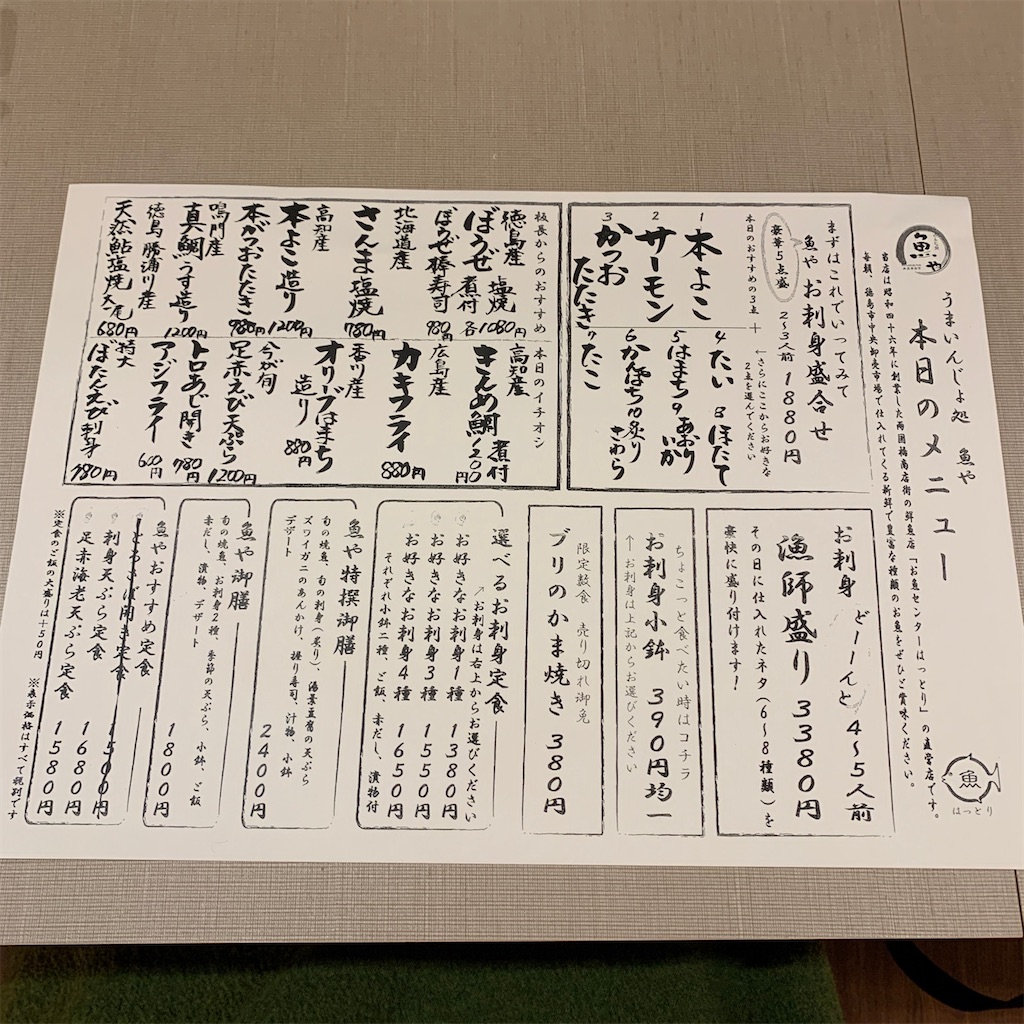 魚や
うまいんじょ処 魚や
本日のメニュー
当店は昭和四十六年に創業した両国橋商店街の鮮魚店「お魚センターはっとり」の直営店です。
毎朝、徳島市中央卸売市場で仕入れてくる新鮮で豊富な種類のお魚をぜひご賞味ください。
魚
はっとり
まずはこれでいってみて
魚や お刺身盛合せ
豪華5点盛 2~3人前 1880円
本日のおすすめの3点 +
←さらにここからお好きな
2点を選んでください
1 本よこ
2 サーモン
3 かつおたたき
4 たい
5 はまち
6 かんぱち
7 たこ
8 ほたて
9 あおりいか
10 炙りさわら
板長からのおすすめ
徳島産
ぼうぜ 塩焼 煮付 各1080円
ぼうぜ棒寿司 980円
北海道産
さんま塩焼 780円
高知産
本よこ造り 1200円
本がつおたたき 980円
鳴門産
真鯛うす造り 1200円
徳島 勝浦川産
天然鮎塩焼 大尾 680円
本日のイチオシ
高知産
きんめ鯛煮付 1200円
広島産
カキフライ 880円
香川産
オリーブはまち造り 880円
今が旬
足赤えび天ぷら 1200円
トロあじ開き 780円
アジフライ 600円
特大
ぼたんえび刺身 780円
お刺身 どーーんと 4~5人前
漁師盛り 3380円
その日に仕入れたネタ(6~8種類)を
豪快に盛り付けます!
ちょこっと食べたい時はコチラ
お刺身小鉢 390円均一
↑お刺身は上記からお選びください
限定数食 売り切れ御免
ブリのかま焼き 380円
選べるお刺身定食
↗お刺身は右上からお選びください
お好きなお刺身1種 1380円
お好きなお刺身3種 1550円
お好きなお刺身4種 1650円
それぞれ小鉢二種、ご飯、赤だし、漬物付
魚や特撰御膳
旬の焼魚、旬の刺身(炙り)、湯葉豆腐の天ぷら
ズワイガニのあんかけ、握り寿司、汁物、小鉢
デザート 2400円
魚や御膳
旬の焼魚、お刺身2種、季節の天ぷら、小鉢、ご飯
赤だし、漬物、デザート 1800円
魚やおすすめ定食
とろさば開き定食 1500円
刺身天ぷら定食 1680円
足赤海老天ぷら定食 1580円
※定食のご飯の大盛りは+50円
※表示価格はすべて税別です